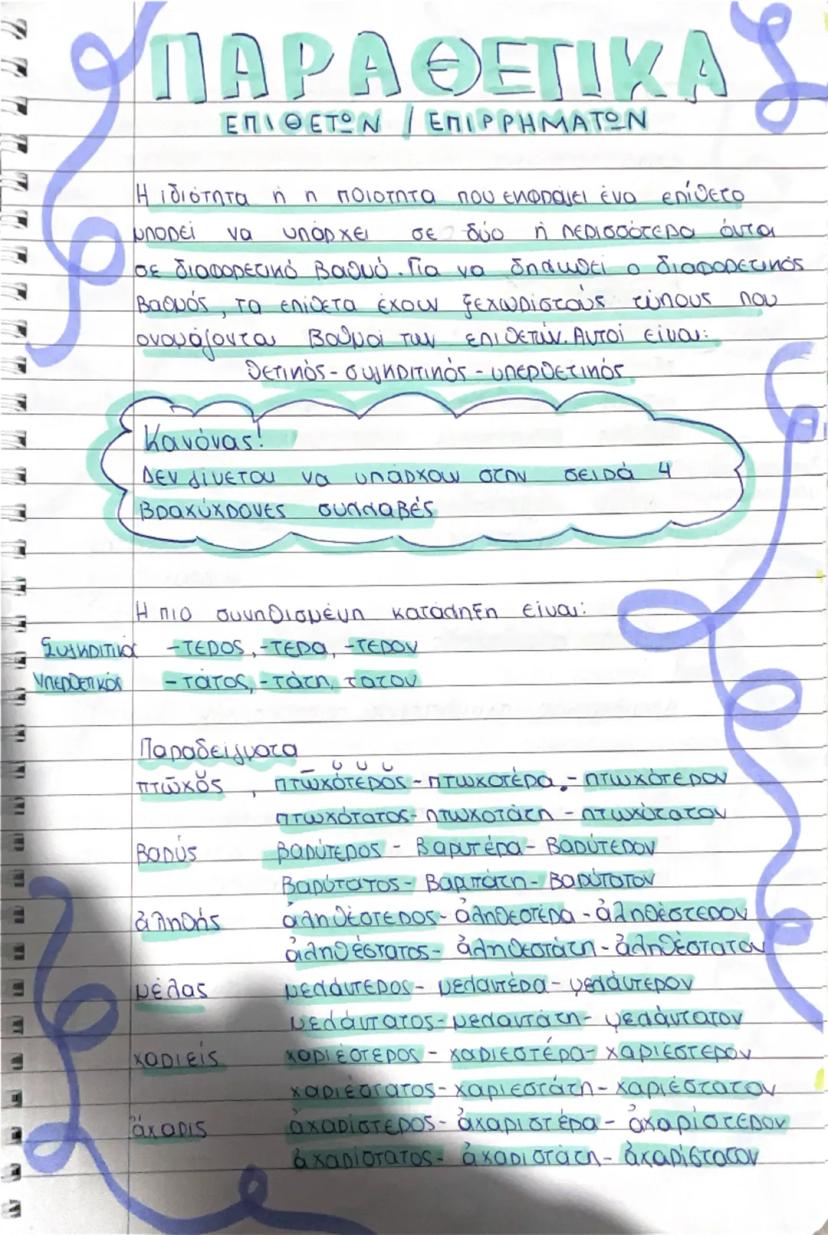 ΠΑΡΑΘΕΤΙΚΑ
ΕΠΙΘΕΤΩΝ / ΕΠΙΡΡΗΜΑΤΩΝ
Η ιδιότητα ή η ποιότητα που εκφράζει ένα επίθετο
μπορεί να υπάρχει σε δύο ή περισσότερα όντα
σε διαφορετικό βαθμό. Για να δηλωθεί ο διαφορετικός
βαθμός, τα επίθετα έχουν ξεχωριστούς τύπους που
ονομάζονται βαθμοί των επιθέτων. Αυτοί είναι:
θετικός - συγκριτικός - υπερθετικός
Κανόνας!
Δεν γίνεται να υπάρχουν στην σειρά 4
βραχύχρονες συλλαβές
Η πιο συνηθισμένη κατάληξη είναι:
Συγκριτικός -τερος, -τερα, -τερον
Υπερθετικός -τατος, -τάτη, τατον
Παραδείγματα
πτωχός, πτωχότερος - πτωχοτέρα - πτωχότερον
πτωχότατος - πτωχοτάτη - πτωχότατον
βαρύς βαρύτερος - βαρυτέρα - βαρύτερον
βαρύτατος - βαρυτάτη - βαρύτατον
ἀληθής ἀληθέστερος - ἀληθεστέρα - ἀληθέστερον
ἀληθέστατος - ἀληθεστάτη - ἀληθέστατον
μέλας μελάντερος - μελαντέρα - μελάντερον
μελάντατος - μελαντάτη - μελάντατον
χαριείς χαριέστερος - χαριεστέρα - χαριέστερον
χαριέστατος - χαριεστάτη - χαριέστατον
ἄχαρις ἀχαρίστερος - ἀχαριστέρα - ἀχαρίστερον
ἀχαρίστατος - ἀχαριστάτη - ἀχαρίστατον